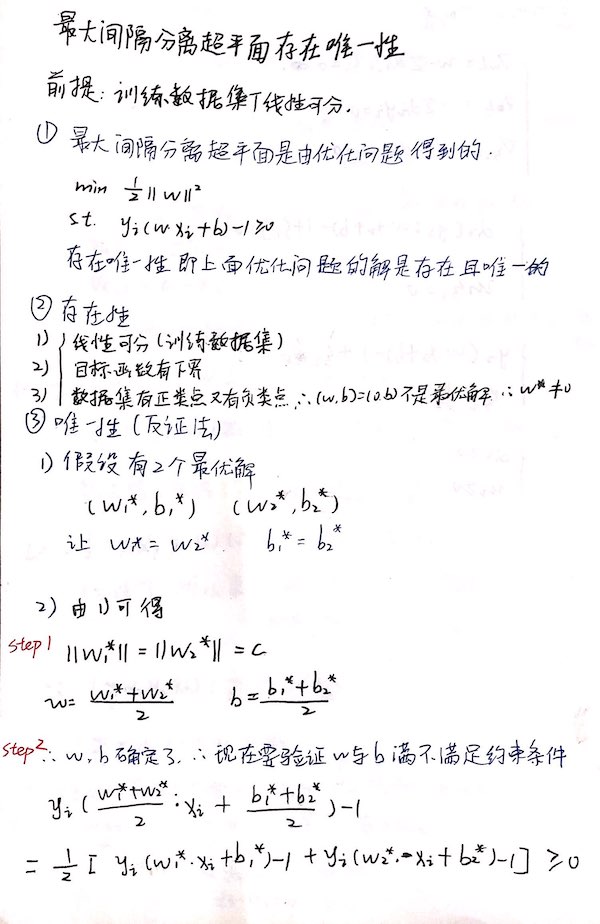 最大间隔分离超平面存在唯一性
前提: 训练数据集T线性可分.
① 最大间隔分离超平面是由优化问题得到的.
min ½||w||²
s.t. yᵢ(w·xᵢ+b)-1≥0
存在唯一性即上面优化问题的解是存在且唯一的
② 存在性
1) 线性可分(训练数据集)
2) 目标函数有下界
3) 数据集有正类点又有负类点 ∴(w,b)=(0,b)不是最优解 ∴w*≠0
③ 唯一性(反证法)
1) 假设有2个最优解
(w₁*, b₁*) (w₂*, b₂*)
让 w₁*=w₂* b₁*=b₂*
2) 由1)可得
step1 ||w₁*||=||w₂*||=c
w=(w₁*+w₂*)/2 b=(b₁*+b₂*)/2
step2 ∵w,b确定了,∴现在要验证w与b满不满足约束条件
yᵢ((w₁*+w₂*)/2·xᵢ+(b₁*+b₂*)/2)-1
=½[yᵢ(w₁*·xᵢ+b₁*)-1+yᵢ(w₂*·xᵢ+b₂*)-1]≥0